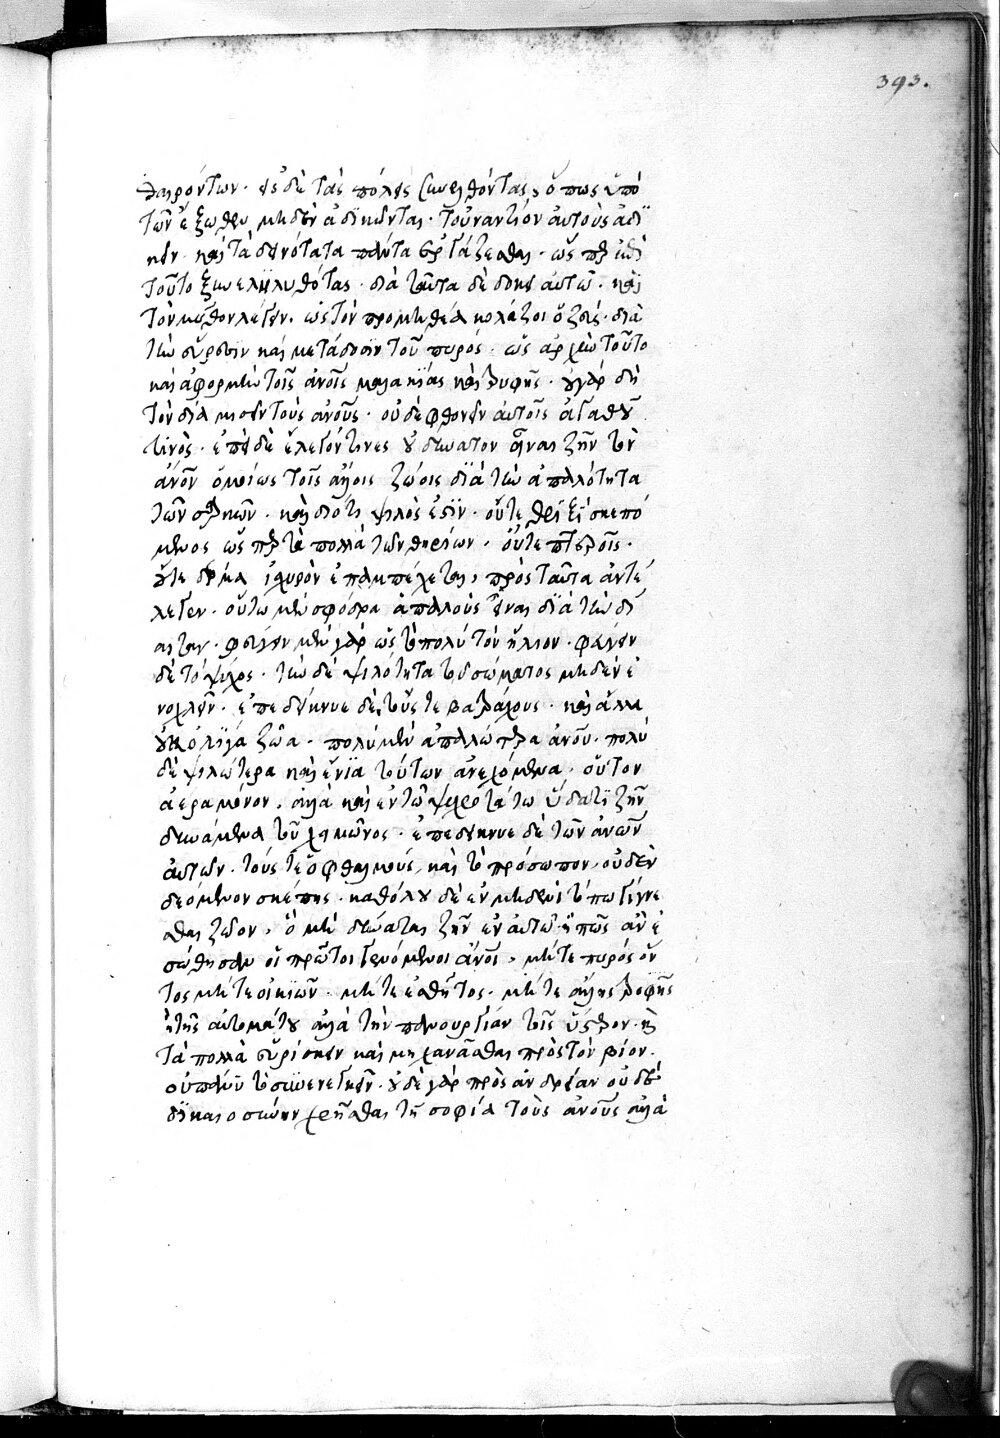 393.
θαιρόντων. εἰς δὲ τὰς πόλεις συνελθόντας, ὅπως ὑπὸ
τῶν ἔξωθεν μηδὲν ἀδικῶνται. τοὐναντίον αὐτοὺς ἀδι
κεῖν. καὶ τὰ δεινότατα πάντα ἐργάζεσθαι. ὥσπερ ἐπὶ
τοῦτο ξυνεληλυθότας. διὰ ταῦτα δὲ δοκεῖ αὐτῷ. καὶ
τὸν μῦθον λέγειν. ὡς τὸν προμηθέα κολάζοι ὁ ζεύς. διὰ
τὴν εὕρεσιν καὶ μετάδοσιν τοῦ πυρός. ὡς ἀρχὴν τοῦτο
καὶ ἀφορμὴν τοῖς ἀνοις μαλακίας καὶ τρυφῆς. οὐ γὰρ δὴ
τὸν δία μισεῖν τοὺς ἀνους. οὐδὲ φθονεῖν αὐτοῖς ἀγαθοῦ
τινὸς. ἐπεὶ δὲ ἔλεγόν τινες οὐ δυνατὸν εἶναι ζῆν τὸν
ἄνον ὁμοίως τοῖς ἄλλοις ζώοις διὰ τὴν ἁπαλότητα
τῶν σαρκῶν. καὶ διότι ψιλός ἐστιν. οὔτε θριξὶ σκεπό
μενος ὥσπερ τὰ πολλὰ τῶν θηρίων. οὔτε πτεροῖς.
οὔτε δέρμα ἰσχυρὸν ἐπαμπέχεται, πρὸς ταῦτα ἀντέ
λεγεν. οὕτω μὲν σφόδρα ἁπαλοὺς εἶναι διὰ τὴν δί
αιταν. φεύγειν μὲν γὰρ ὡς τὸ πολὺ τὸν ἥλιον. φεύγειν
δὲ τὸ ψῦχος. τὴν δὲ ψιλότητα τοῦ σώματος μηδὲν ἐ
νοχλεῖν. ἐπεδείκνυε δὲ τούς τε βατράχους. καὶ ἄλλα
οὐκ ὀλίγα ζῶα. πολὺ μὲν ἁπαλώτερα ἀνου. πολὺ
δὲ ψιλώτερα καὶ ἔνια τούτων ἀνεχόμενα. οὐ τὸν
ἀέρα μόνον, ἀλλὰ καὶ ἐν τῷ ψυχροτάτω ὕδατι ζῆν
δυνάμενα τοῦ χειμῶνος. ἐπεδείκνυε δὲ τῶν ἀνων
αὐτῶν. τούς τε ὀφθαλμοὺς, καὶ τὸ πρόσωπον, οὐδὲν
δεόμενον σκέπης. καθόλου δὲ ἐν μηδενὶ τόπω γίγνε
σθαι ζῶον, ὃ μὴ δύναται ζῆν ἐν αὐτῷ. ἢ πῶς ἂν ἐ
σώθησαν οἱ πρῶτοι γενόμενοι ἄνοι, μήτε πυρὸς ὄν
τος μήτε οἰκιῶν. μήτε ἐσθῆτος. μήτε ἄλλης τροφῆς
ἢ τῆς αὐτομάτου ἀλλὰ τὴν πανουργίαν τοῖς ὕστερον. καὶ
τὰ πολλὰ εὑρίσκειν καὶ μηχανᾶσθαι πρὸς τὸν βίον.
οὐ πάνυ τὸ συνενεγκεῖν. οὐδὲ γὰρ πρὸς ἀνδρείαν οὐδὲ
δικαιοσύνην χρῆσθαι τῇ σοφία τοὺς ἀνους ἀλλὰ